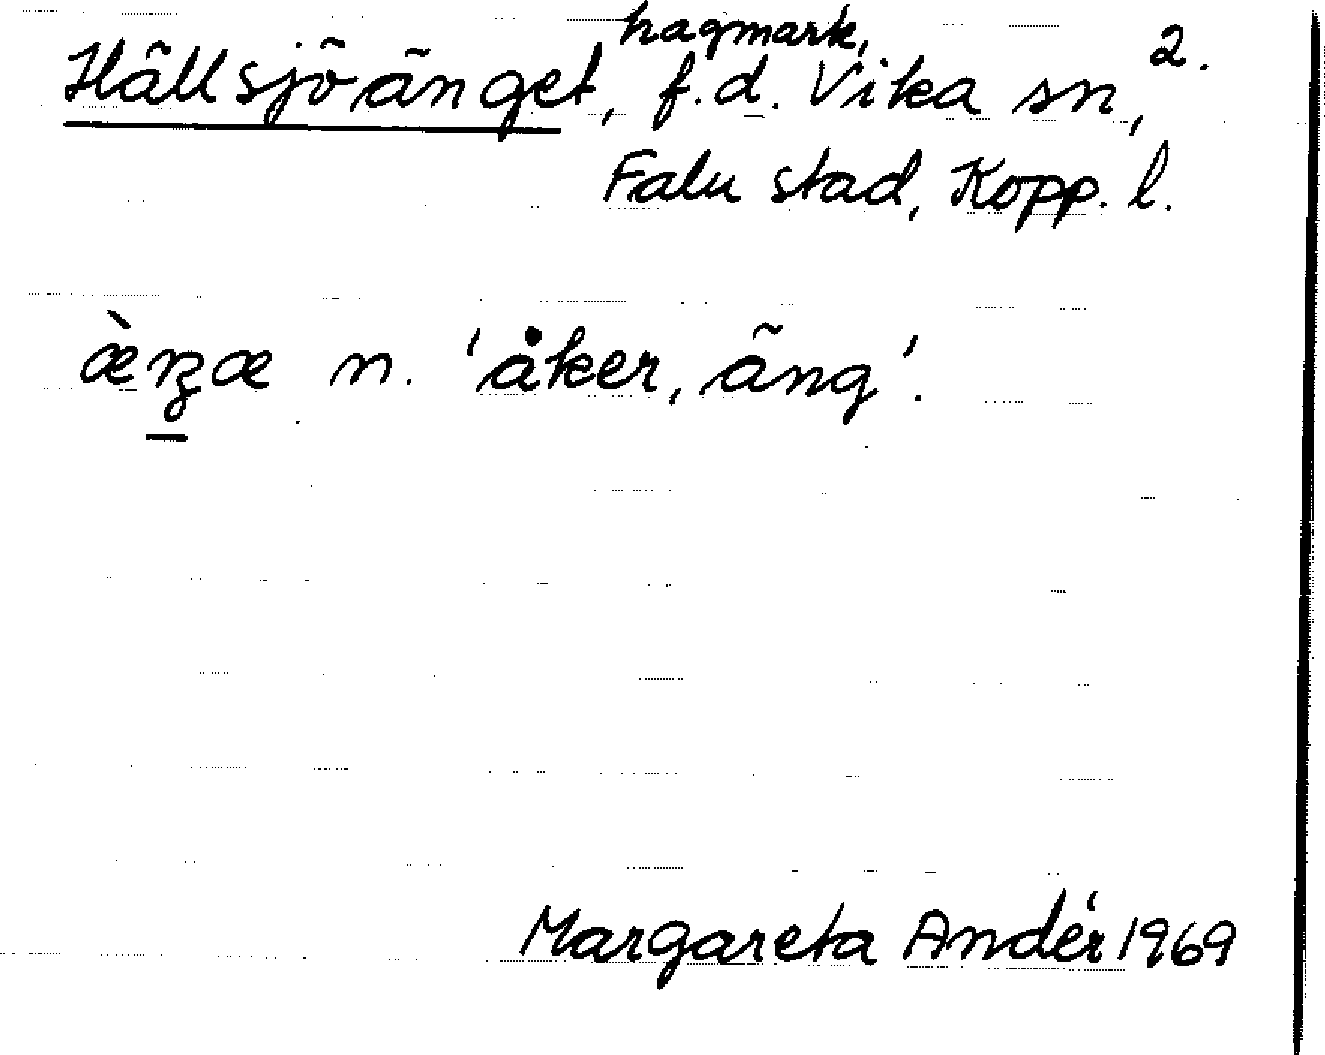 Hällsjöänget, hagmark, f.d. Vika sn, 2.
Falu stad, Kopp. l.
æ̀ṉʒæ n. 'åker, äng'.
Margareta Andér 1969